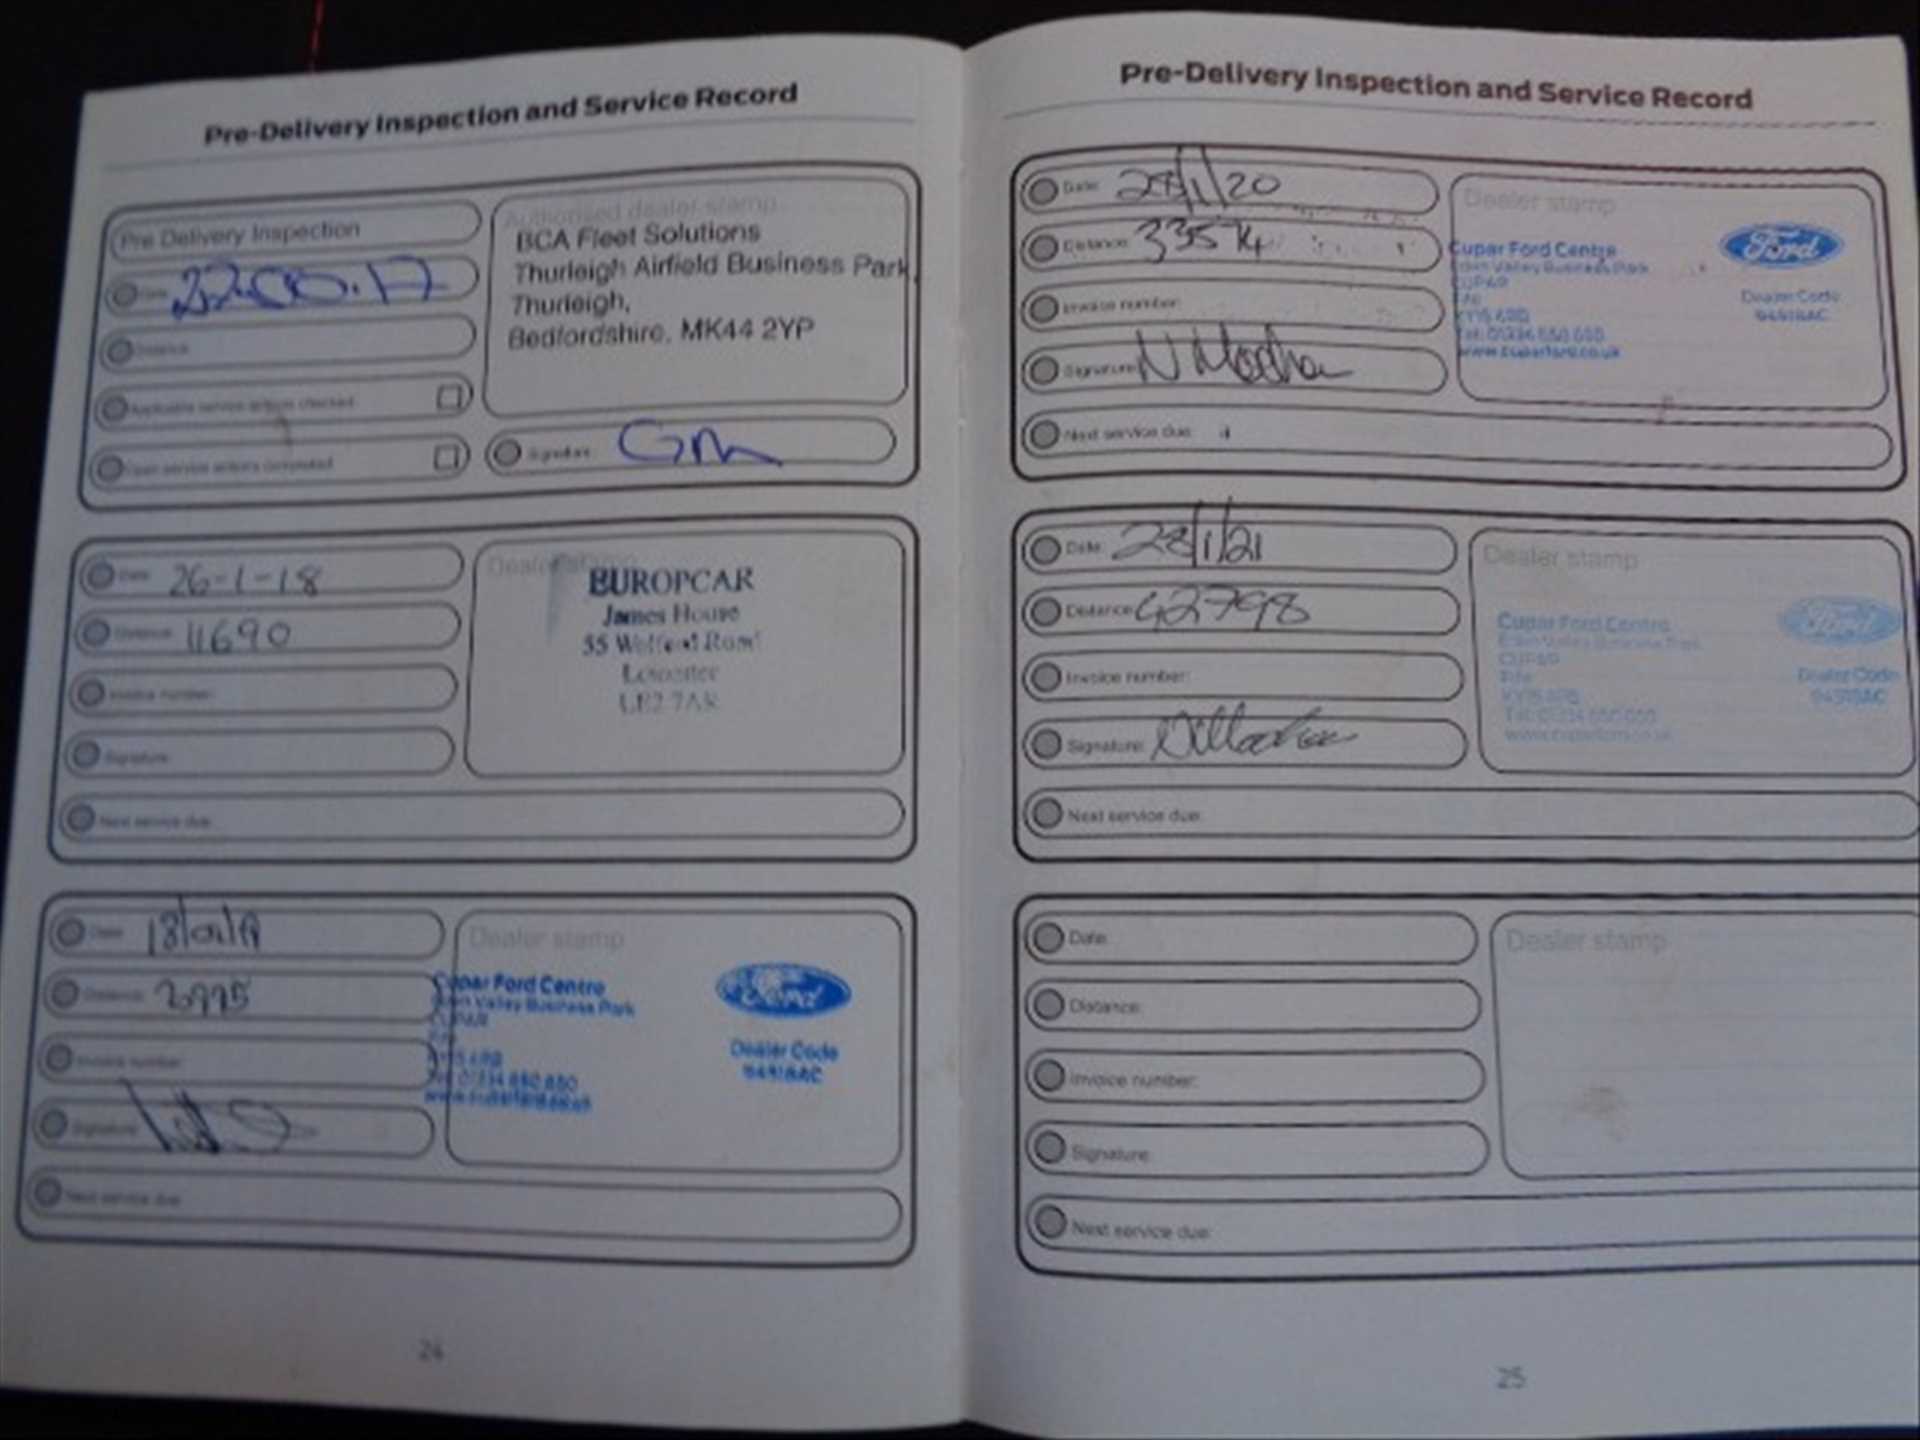 Pre-Delivery Inspection and Service Record
Pre Delivery Inspection
Authorised dealer stamp
BCA Fleet Solutions
Thurleigh Airfield Business Park
Thurleigh,
Bedfordshire, MK44 2YP
Date:
Distance:
Applicable service actions checked
Open service actions completed
Signature:
Date: 26-1-18
Distance: 11690
Invoice number:
Signature:
Next service due:
Dealer stamp
EUROPCAR
James House
55 Welford Road
Leicester
LE2 7AR
Date:
Distance:
Invoice number:
Signature:
Next service due:
Dealer stamp
Cupar Ford Centre
Eden Valley Business Park
CUPAR
Fife
KY15 4RB
Tel: 01334 650 650
www.cuparford.co.uk
Ford
Dealer Code
24
Pre-Delivery Inspection and Service Record
Date:
Distance:
Invoice number:
Signature:
Next service due:
Dealer stamp
Cupar Ford Centre
Eden Valley Business Park
CUPAR
Fife
KY15 4RB
Tel: 01334 650 650
www.cuparford.co.uk
Ford
Dealer Code
Date: 28/1/21
Distance: 42798
Invoice number:
Signature:
Next service due:
Dealer stamp
Cupar Ford Centre
Eden Valley Business Park
CUPAR
Fife
KY15 4RB
Tel: 01334 650 650
www.cuparford.co.uk
Ford
Dealer Code
Date:
Distance:
Invoice number:
Signature:
Next service due:
Dealer stamp
25